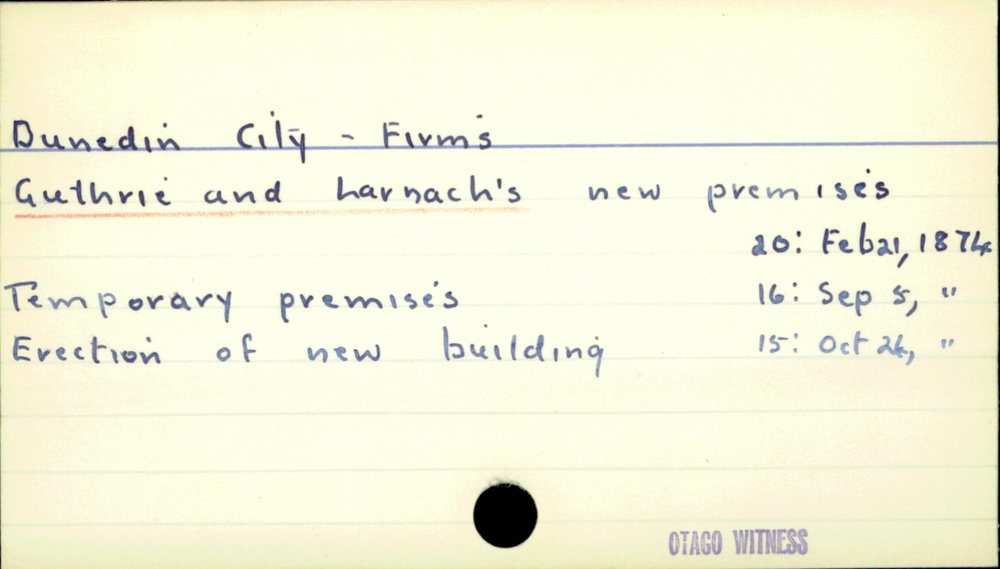 Dunedin City - Firms
Guthrie and Larnach's new premises
20: Feb 21, 1874
Temporary premises 16: Sep 5, "
Erection of new building 15: Oct 24, "
OTAGO WITNESS